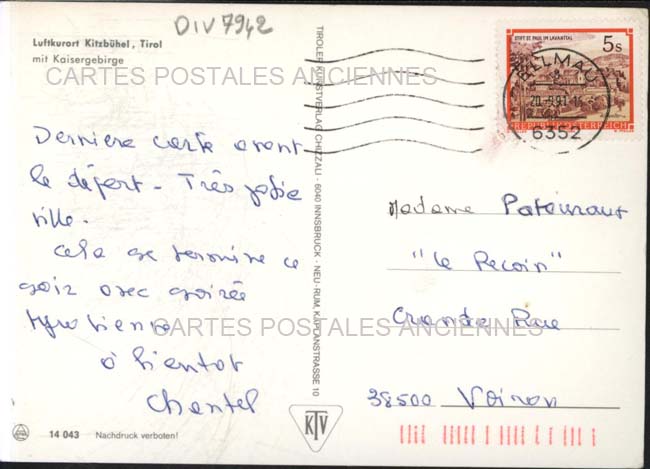 DIV 7942
Luftkurort Kitzbühel, Tirol
mit Kaisergebirge
CARTES POSTALES ANCIENNES
Derniere carte avant
le départ - Très jolie
ville.
Cela se termine ce
soir avec soirée
tyrolienne
à bientot
Chantal
TIROLER KUNSTVERLAG CHIZZALI - 6040 INNSBRUCK - NEU-RUM, KAPLANSTRASSE 10
STIFT ST. PAUL IM LAVANTTAL
5s
REPUBLIK ÖSTERREICH
ELLMAU
6352
Madame
"Le Recoin"
Grande Rue
38500 Voiron
CARTES POSTALES ANCIENNES
KTV
14 043 Nachdruck verboten!